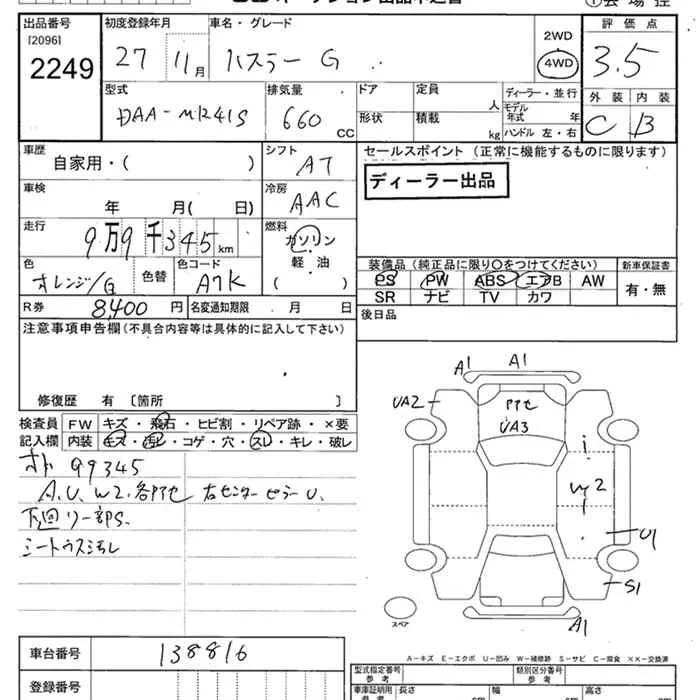 出品番号 初度登録年月 車名・グレード 2WD 評価点
[2096] 27 11月 ハスラー G 4WD 3.5
2249
型式 排気量 ドア 定員 人 ディーラー・並行 外装 内装
DAA-MR41S 660 CC 形状 積載 kg モデル年式 年 C B
ハンドル 左・右
車歴 自家用・( ) シフト AT セールスポイント (正常に機能するものに限ります)
車検 年 月( 日) 冷房 AAC ディーラー出品
走行 9万9千345km 燃料 ガソリン
軽・油
( )
色 オレンジ/G 色替 色コード A7K
装備品 (純正品に限り○をつけてください) 新車保証書
PS PW ABS エアB AW 有・無
SR ナビ TV カワ
R券 8,400円 名変通知期限 月 日
後日品
注意事項申告欄(不具合内容等は具体的に記入して下さい)
修復歴 有 〔箇所 〕
検査員 FW キズ・飛石・ヒビ割・リペア跡・×要
記入欄 内装 キズ・汚レ・コゲ・穴・スレ・キレ・破レ
99345
A.U.W2.各P7セ 右センターピラーU.
下回リ一部S.
シートウス汚レ
A1 A1
UA2
P7セ
UA3
W2
U1
S1
A1
スペア
車台番号 138816
登録番号
A-キズ E-エクボ U-凹み W-補修跡 S-サビ C-腐食 ××-交換済
型式指定番号 類別区分番号
参考 参考
車庫証明用 長さ 幅 高さ
参考 cm cm cm